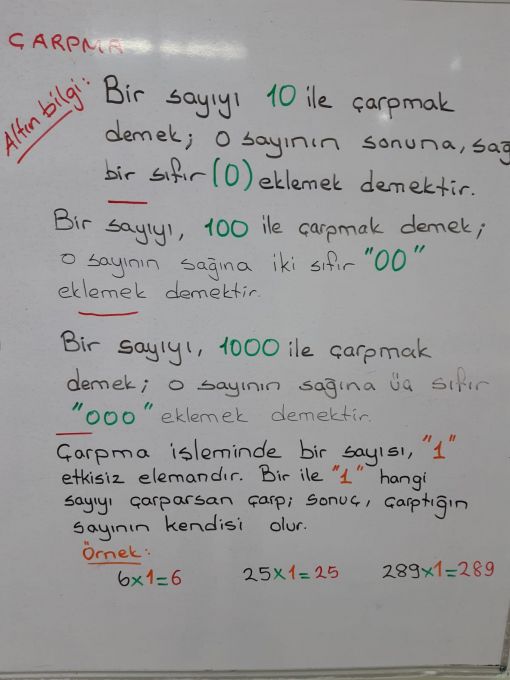 ÇARPMA
Altın bilgi:
Bir sayıyı 10 ile çarpmak
demek; o sayının sonuna, sağ
bir sıfır (0) eklemek demektir.
Bir sayıyı, 100 ile çarpmak demek;
o sayının sağına iki sıfır "00"
eklemek demektir.
Bir sayıyı, 1000 ile çarpmak
demek; o sayının sağına üç sıfır
"000" eklemek demektir.
Çarpma işleminde bir sayısı, "1"
etkisiz elemandır. Bir ile "1" hangi
sayıyı çarparsan çarp; sonuç, çarptığın
sayının kendisi olur.
Örnek:
6x1=6 25x1=25 289x1=289